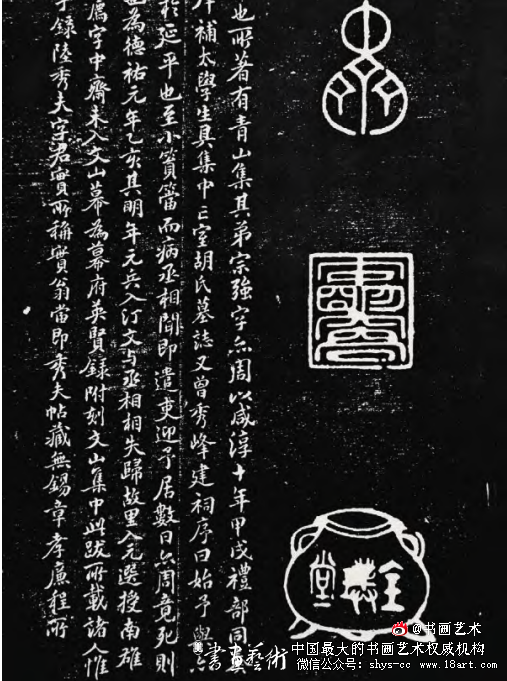 也所著有青山集其弟宗強字六周以咸淳十年甲戌禮部同
補太學生具集中亡室胡氏墓誌又曾秀峰建祠序曰始予與六
於延平也至小篔簹而病丞相聞即遣吏迎予居數日六周竟死則
為德祐元年乙亥其明年元兵入汀文与丞相相失歸故里入元選授南雄
厲字中齋未入文山幕為幕府英賢錄附刻文山集中此跋所載諸人惟
錄陸秀夫字君實所稱實翁當即秀夫帖藏無錫章孝廉程所
書画藝術
@书画艺术
中国最大的书画艺术权威机构
微信公众号：shys-cc www.18art.com